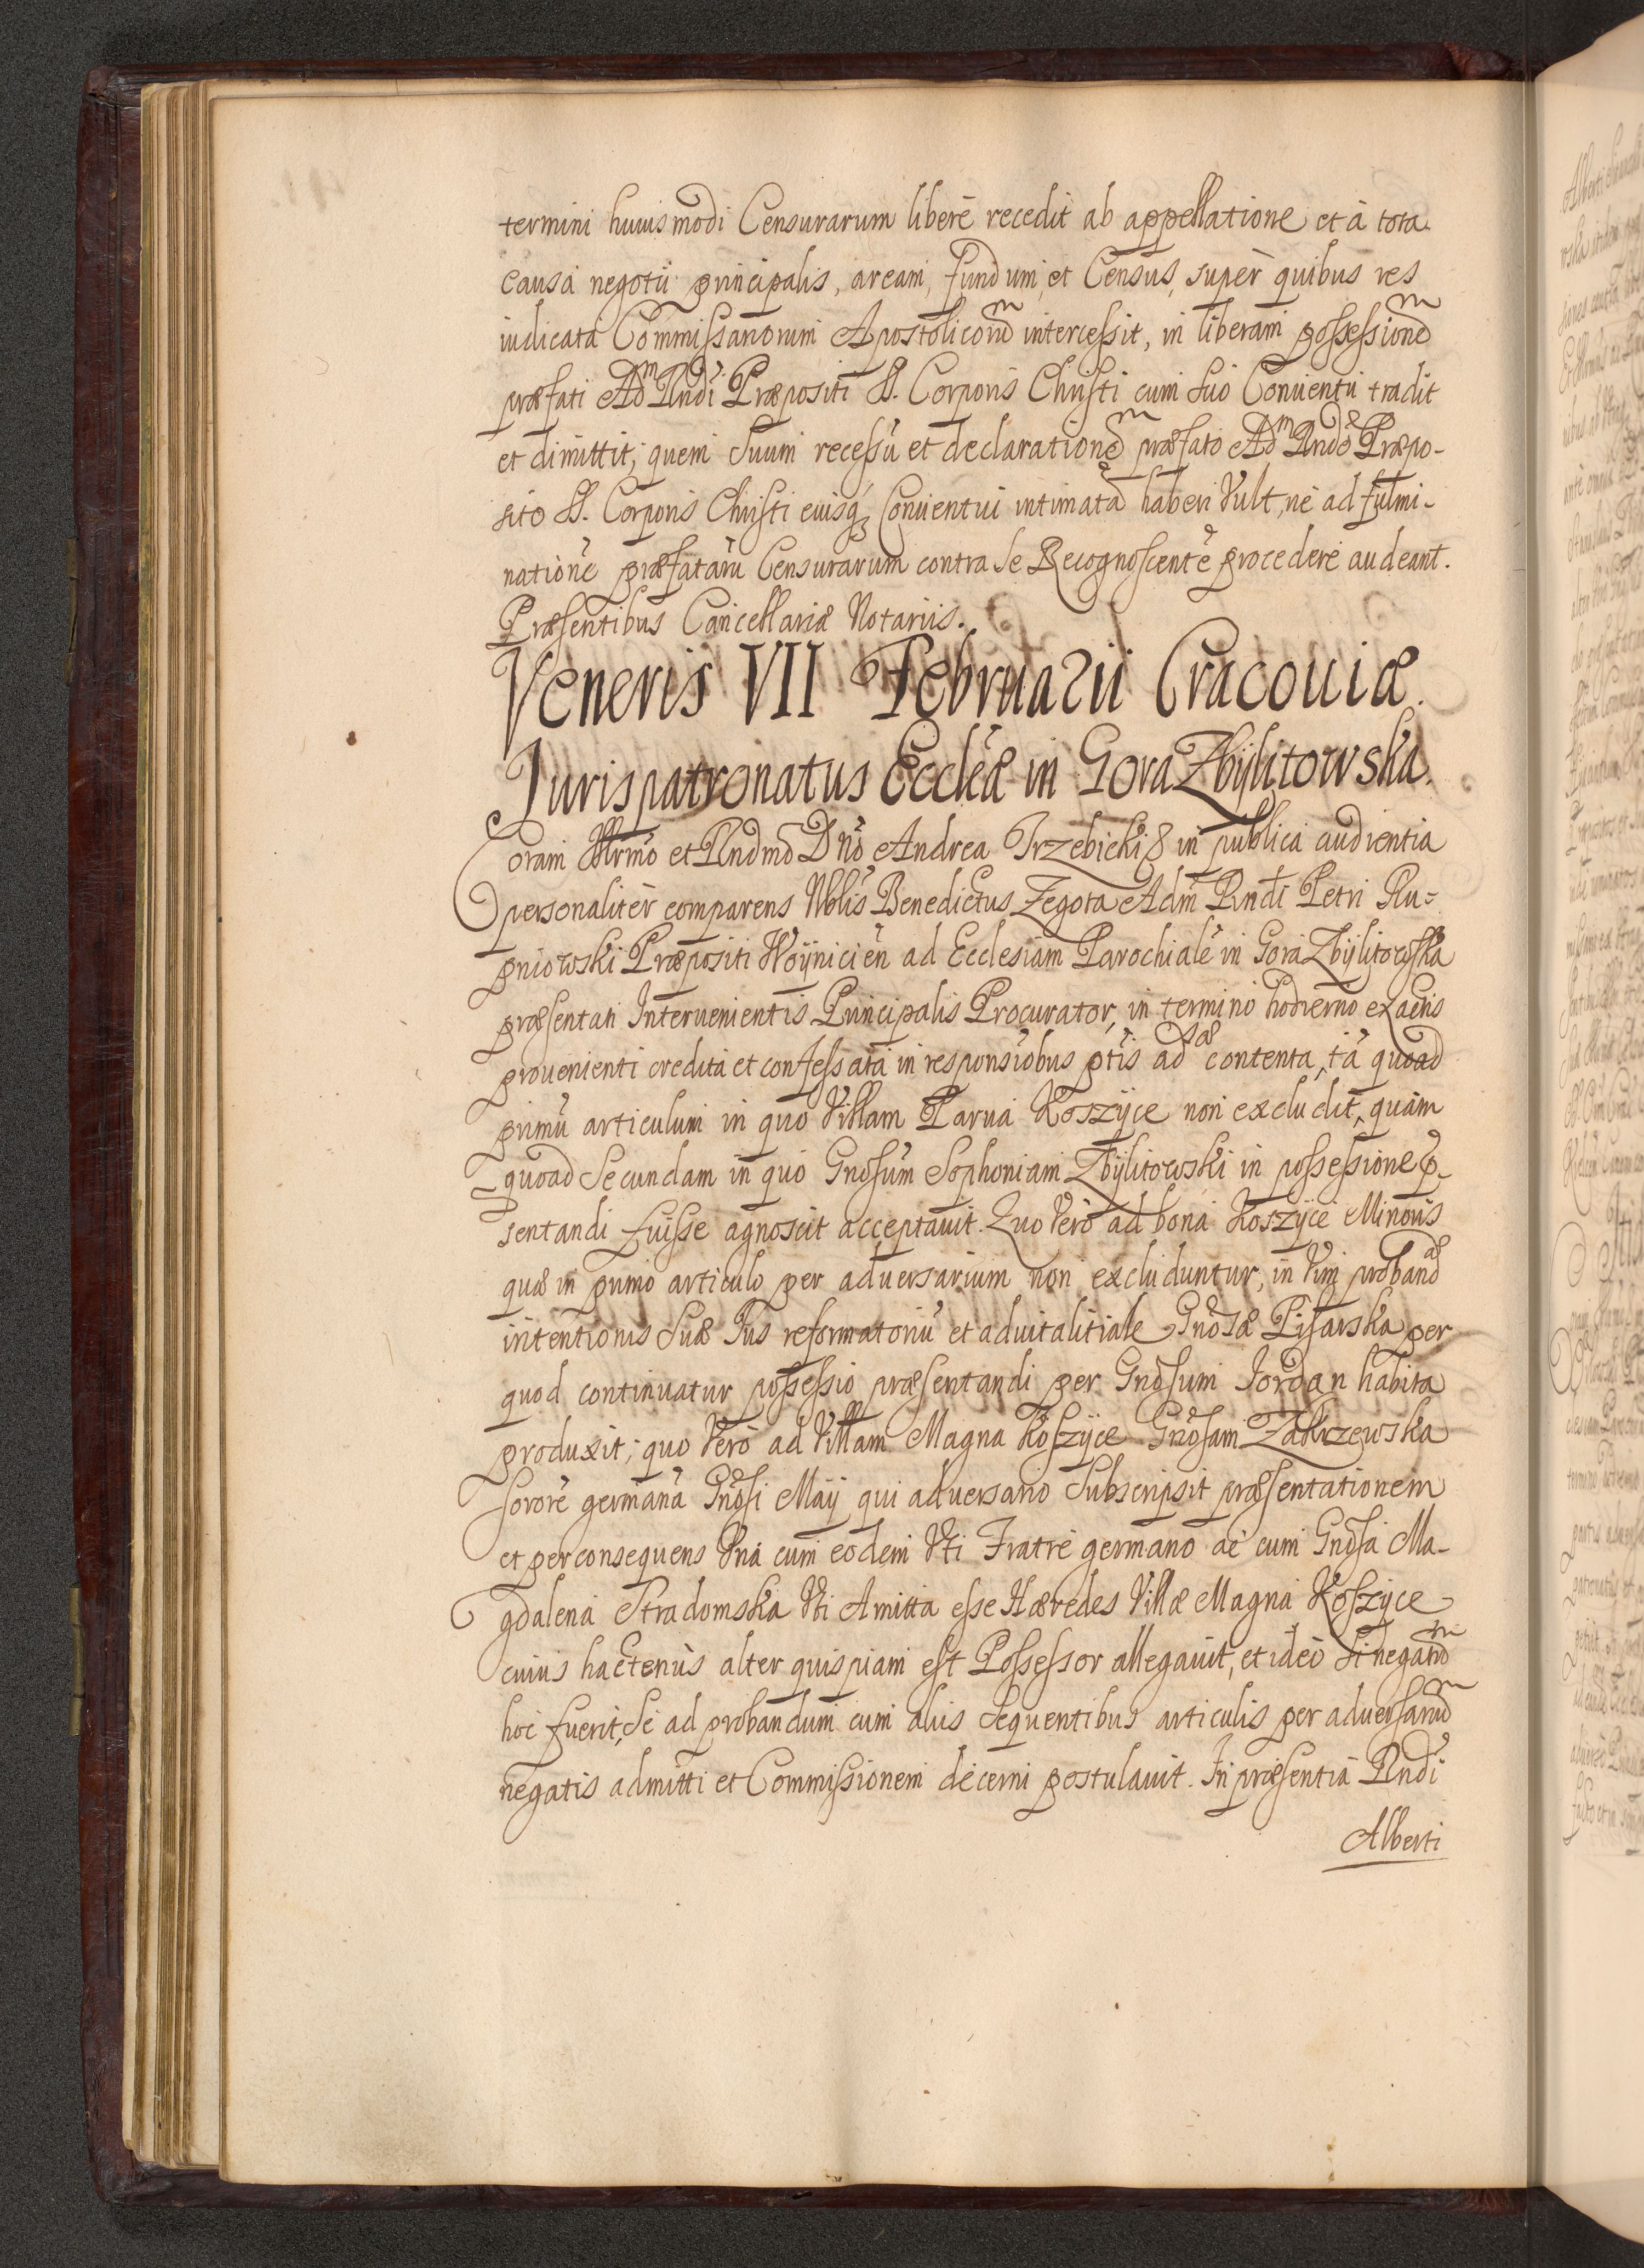 termini huiusmodi Censurarum liberè recedit ab appellatione et à tota
causa negotii principalis, aream, fundum, et Census, super quibus res
iudicata Commissariorum Apostolicorum intercessit, in liberam possessionem
præfati Adm Rndi Præpositi SS. Corporis Christi cum suo Conuentu tradit
et dimittit, quem suum recessu et declarationem præfato Adm Rndo Præpo-
sito SS. Corporis Christi eiusq Conuentui intimata haberi Vult, ne ad fulmi-
natione præfataru Censurarum contra se Recognoscente procedere audeant.
Præsentibus Cancellariæ Notariis.
Veneris VII Februarii Cracouiæ.
Jurispatronatus Eccleæ in Gora Zbÿlitowska.
Coram Illrmo et Rndmo Dno Andrea Trzebicki & in publica audientia
personaliter comparens Nblis Benedictus Zegota Adm Rndi Petri Ru=
pniowski Præpositi Woÿnicien ad Ecclesiam Parochiale in Gora Zbÿlitowska
præsentati Interuenientis Principalis Procurator, in termino hodierno ex actis
prouenienti credita et confessata in responsiobus ptis aduersæ contenta, ta quoad
primu articulum in quo Villam Parua Koszÿce non excludit, quam
quoad secundam in quo Gnosum Sophoniam Zbÿlitowski in possessione p-
sentandi fuisse agnoscit acceptauit. Quo Vero ad bona Koszÿce Minoris
quæ in primo articulo per aduersarium non excluduntur, in Vim probandæ
intentionis suæ Jus reformatoriu et aduitalitiale Gnosæ Pisarska per
quod continuatur possessio præsentandi per Gnosum Jordan habita
produxit; quo Vero ad Villam Magna Koszÿce Gnosam Zakrzewska
sorore germana Gnosi Maÿ qui aduersario subscripsit præsentationem
et per consequens Vna cum eodem Vti Fratre germano ac cum Gnosa Ma-
gdalena Stradomska Vti Amitta esse Hæredes Villæ Magna Koszÿce
cuius hactenus alter quispiam est Possessor allegauit, et ideo si negatum
hoc fuerit, se ad probandum cum aliis sequentibus articulis per aduersarium
negatis admitti et Commissionem decerni postulauit. In præsentia Rndi
Alberti